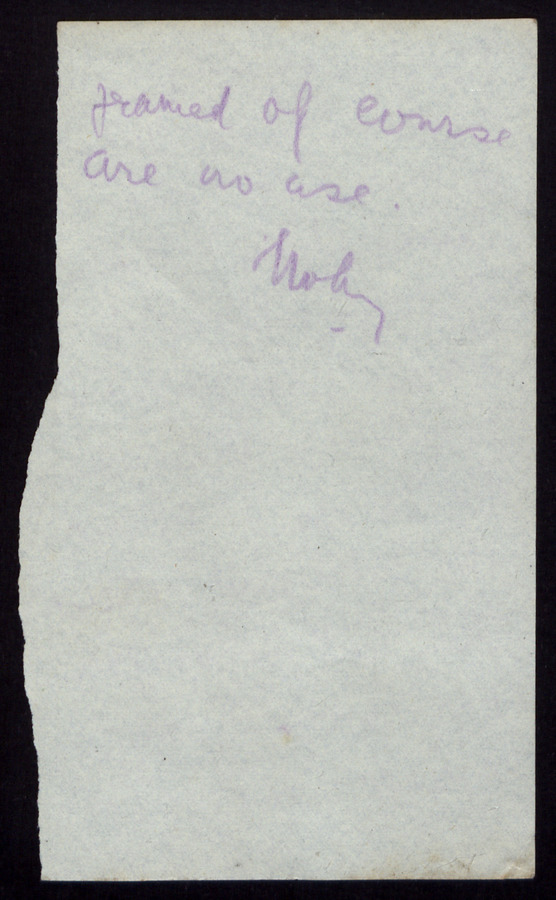 framed of course
are no use.